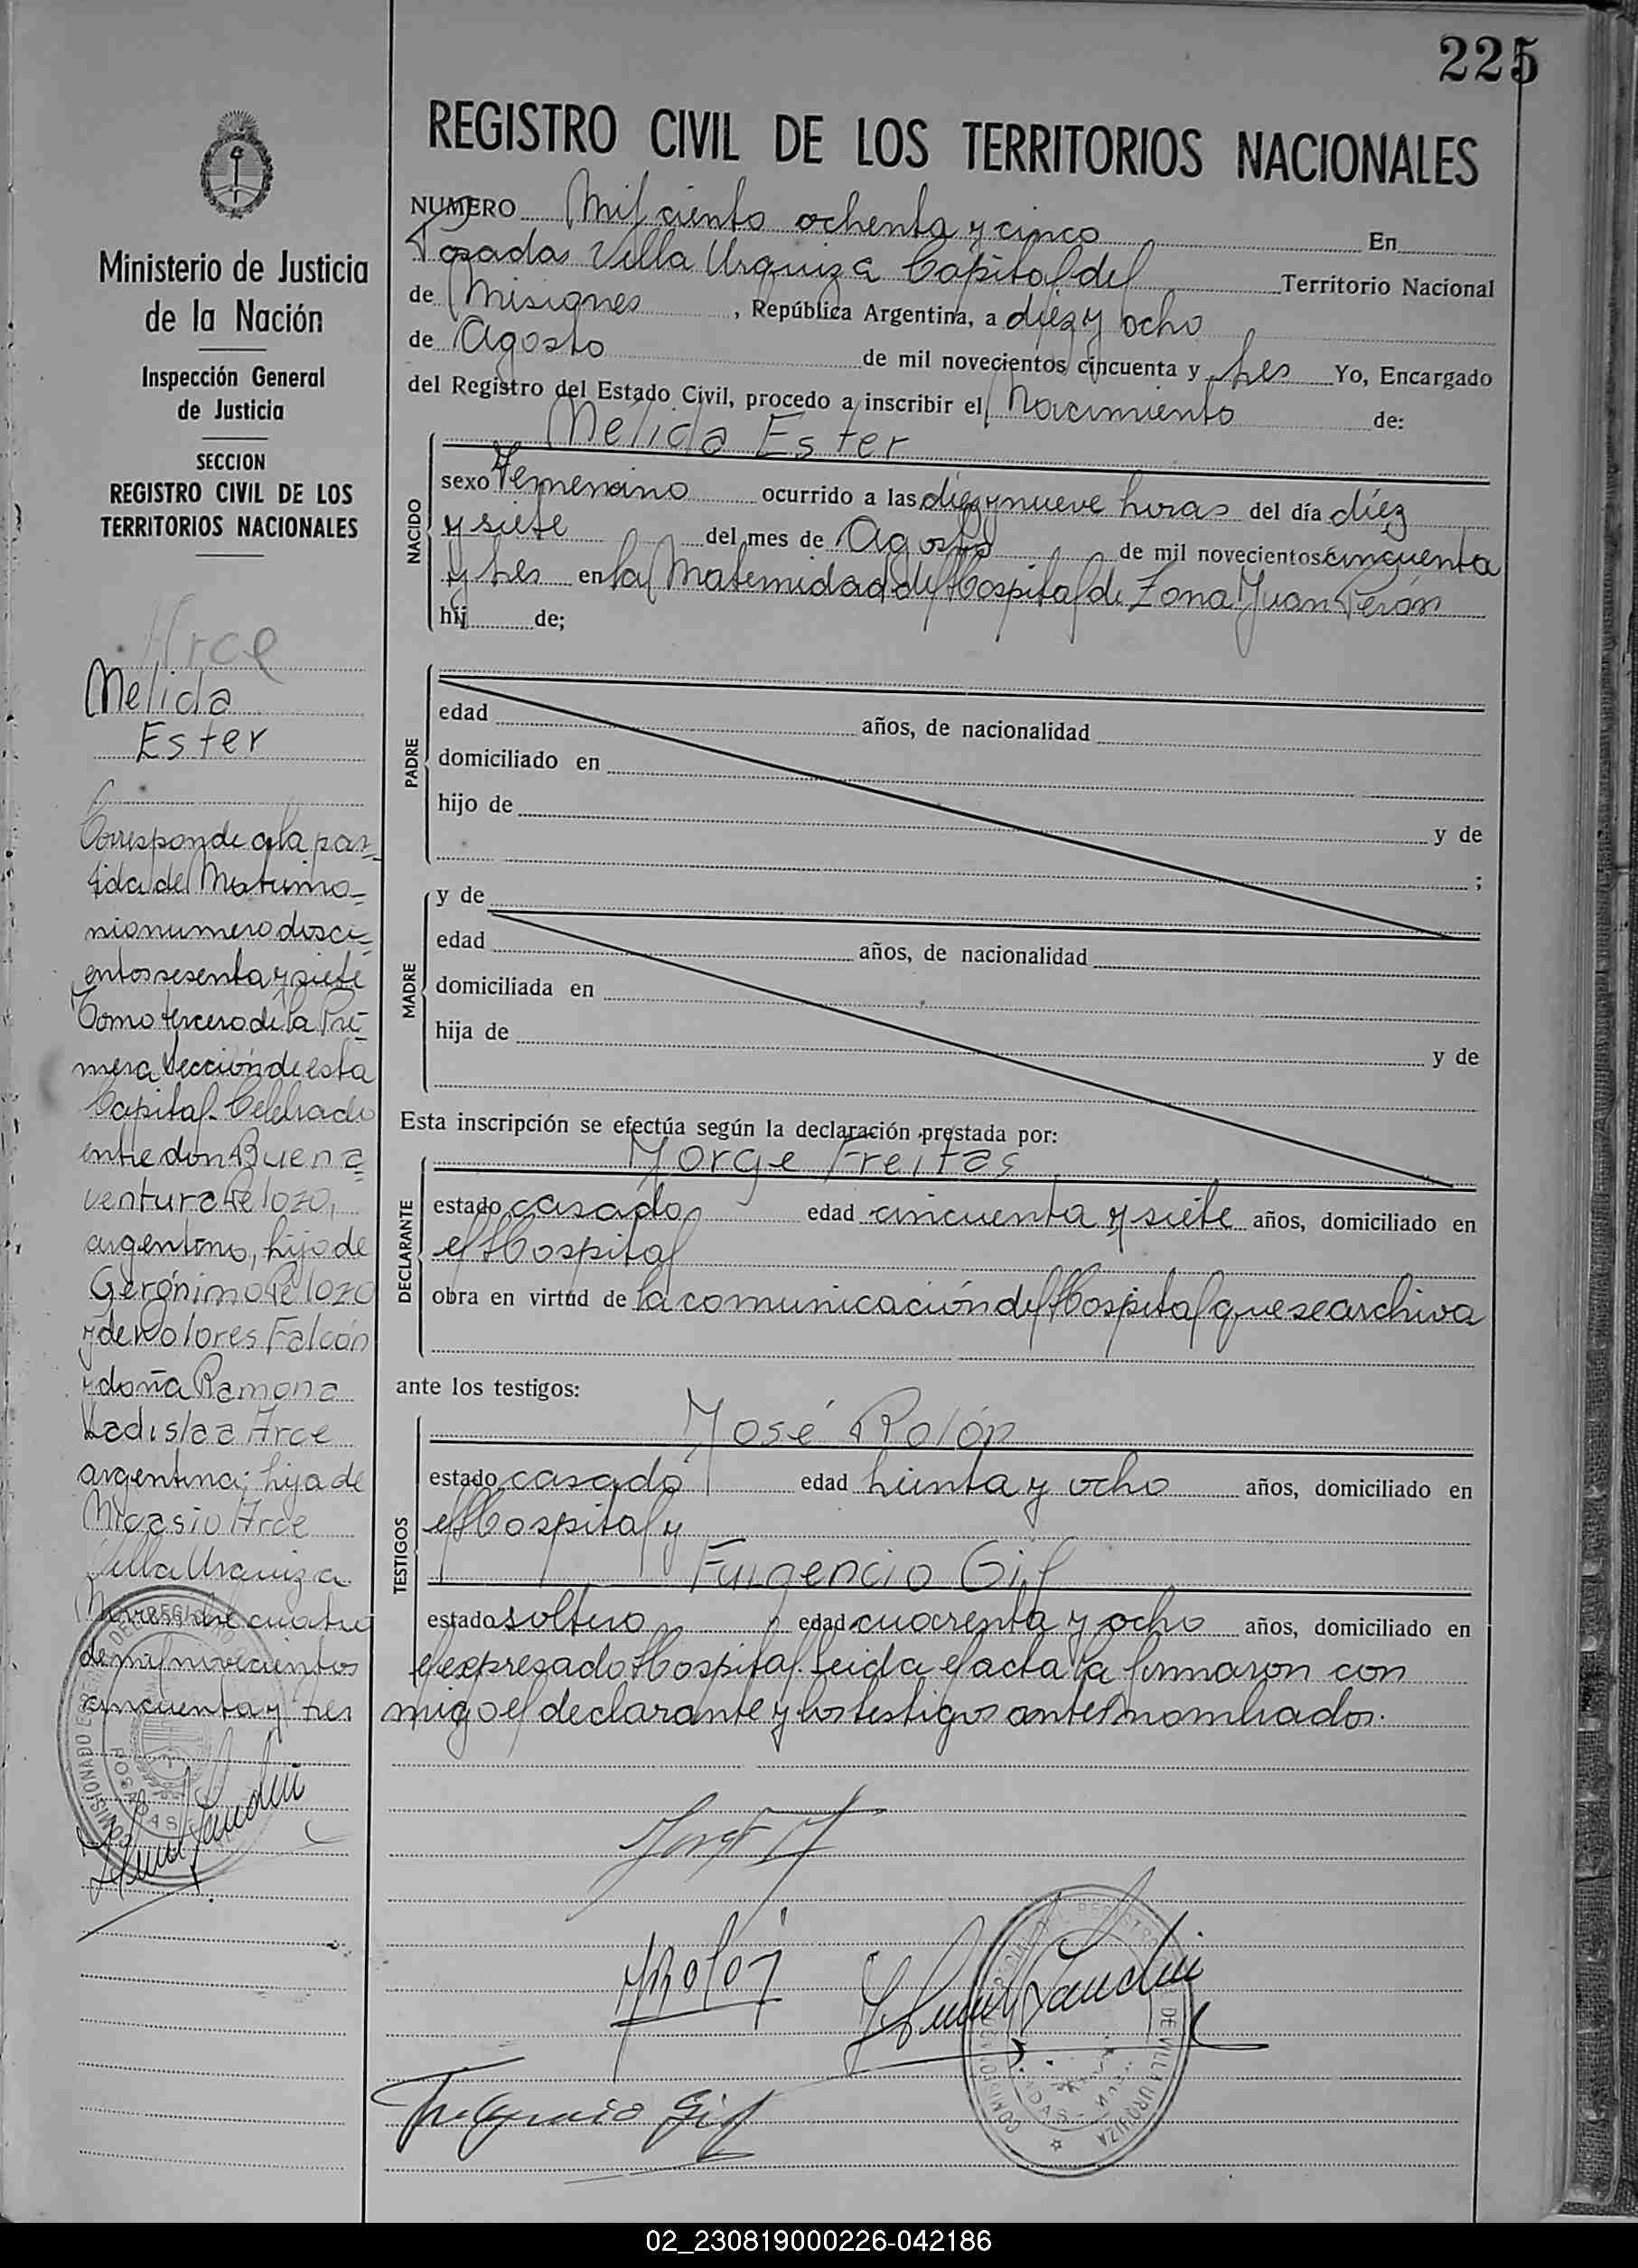 225
REGISTRO CIVIL DE LOS TERRITORIOS NACIONALES
NUMERO Mil ciento ochenta y cinco En
Posadas Villa Urquiza Capital del Territorio Nacional
de Misiones, República Argentina, a diez y ocho
de Agosto de mil novecientos cincuenta y tres Yo, Encargado
del Registro del Estado Civil, procedo a inscribir el Nacimiento de:
NACIDO
Melida Ester
sexo Femenino ocurrido a las diez y nueve horas del día diez
y siete del mes de Agosto de mil novecientos cincuenta
y tres en la Maternidad del Hospital de Zona Juan Perón
hij de;
PADRE
edad años, de nacionalidad
domiciliado en
hijo de y de
;
MADRE
y de
edad años, de nacionalidad
domiciliada en
hija de y de
Esta inscripción se efectúa según la declaración prestada por:
DECLARANTE
Jorge Freitas
estado casado edad cincuenta y siete años, domiciliado en
el Hospital
obra en virtud de la comunicación del Hospital que se archiva
ante los testigos:
TESTIGOS
José Rolón
estado casado edad treinta y ocho años, domiciliado en
el Hospital y
Fulgencio Gil
estado soltero edad cuarenta y ocho años, domiciliado en
el expresado Hospital. Leida el acta la firmaron con
migo el declarante y los testigos antes nombrados.
JRolón
Fulgencio Gil
DE VILLA URQUIZA
Ministerio de Justicia
de la Nación
Inspección General
de Justicia
SECCION
REGISTRO CIVIL DE LOS
TERRITORIOS NACIONALES
Arce
Melida
Ester
Corresponde a la par-
tida de Matrimo-
nio numero dosci-
entos sesenta y siete
Tomo tercero de la Pri-
mera Sección de esta
Capital. Celebrado
entre don Buena-
ventura Pelozo,
argentino, hijo de
Gerónimo Pelozo
y de Dolores Falcón
y doña Ramona
Ladislaa Arce
argentina; hija de
Nicasio Arce
Villa Urquiza
Noviembre cuatro
de mil novecientos
cincuenta y tres
POSADAS
02_230819000226-042186